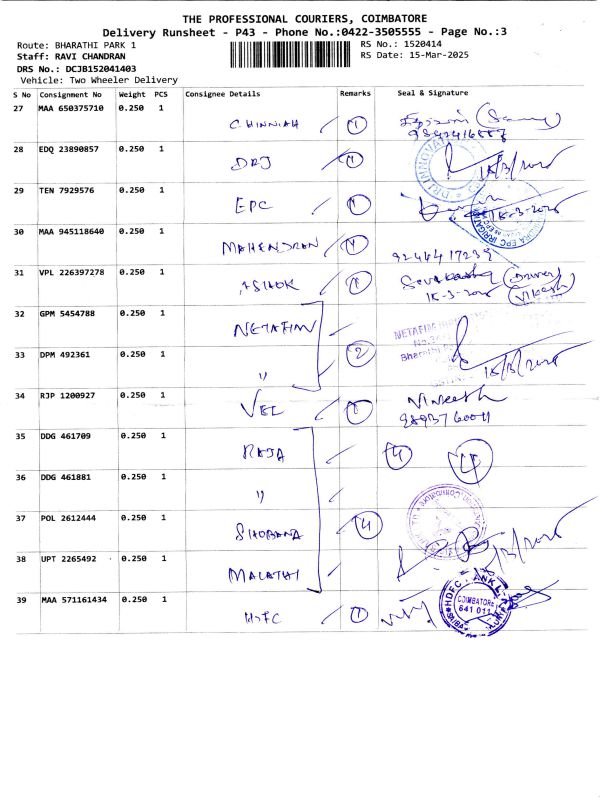 THE PROFESSIONAL COURIERS, COIMBATORE
Delivery Runsheet - P43 - Phone No.:0422-3505555 - Page No.:3
Route: BHARATHI PARK 1
RS No.: 1520414
Staff: RAVI CHANDRAN
RS Date: 15-Mar-2025
DRS No.: DCJB152041403
Vehicle: Two Wheeler Delivery
S No Consignment No Weight PCS Consignee Details Remarks Seal & Signature
27 MAA 650375710 0.250 1
CHINNIAH 1
28 EDQ 23890857 0.250 1
DRJ 1
29 TEN 7929576 0.250 1
EPC 1
30 MAA 945118640 0.250 1
MAHENDRAN 1
9246417239
31 VPL 226397278 0.250 1
ASHOK 1
32 GPM 5454788 0.250 1
NETAFIM
NETAFIM
33 DPM 492361 0.250 1
2
Bharathi
"
34 RJP 1200927 0.250 1
VEL 1
Vinkesh
35 DDG 461709 0.250 1
RAJA 4 4
36 DDG 461881 0.250 1
"
37 POL 2612444 0.250 1
SHOBANA 4
38 UPT 2265492 0.250 1
MALATHI
39 MAA 571161434 0.250 1
HDFC 1
HDFC
COIMBATORE
641 011